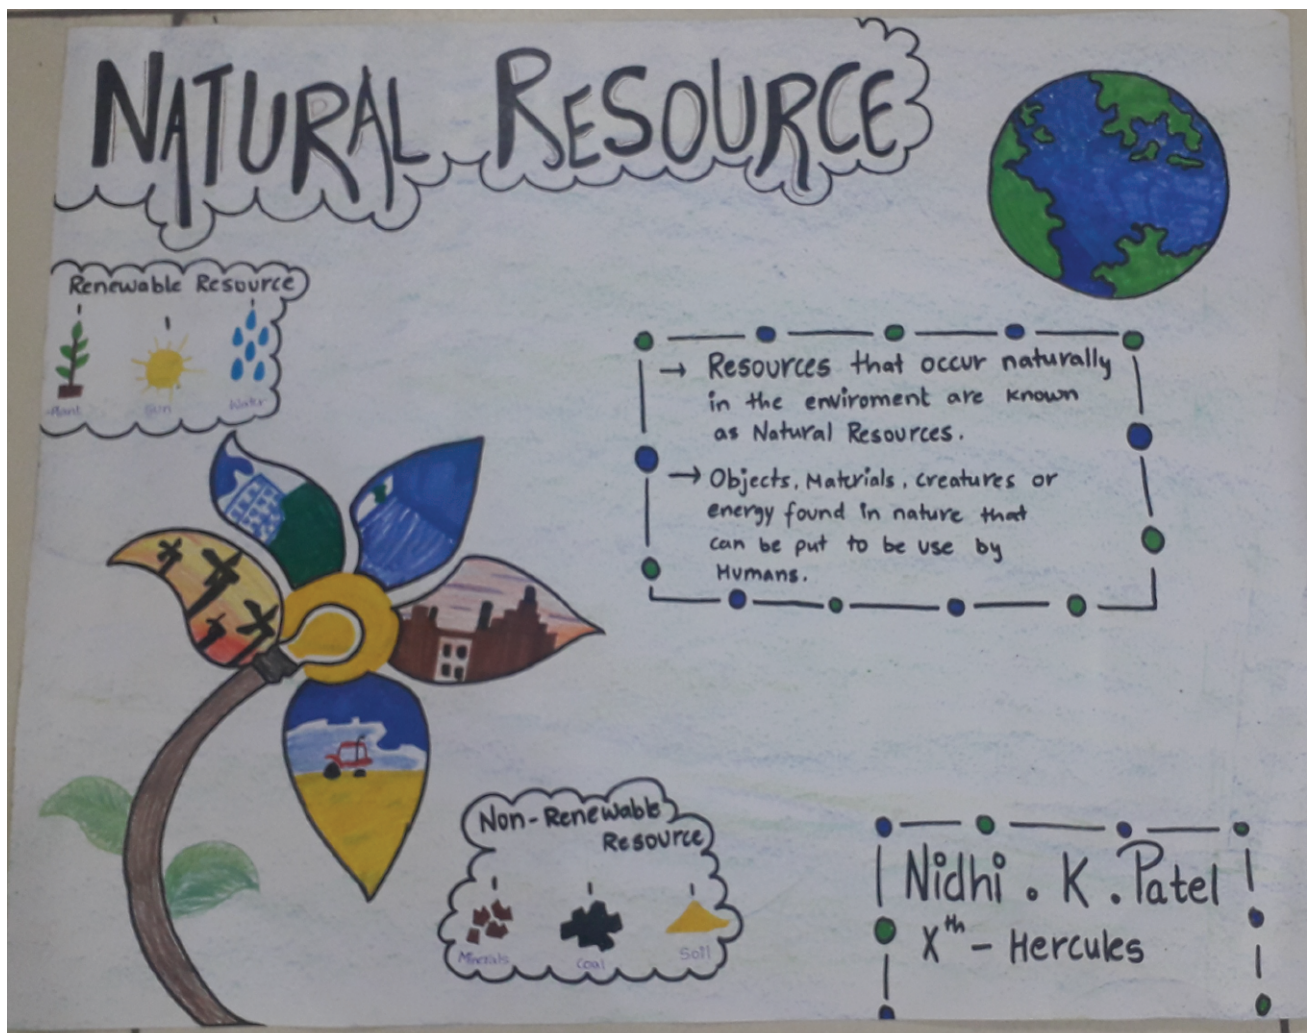 NATURAL RESOURCE
Renewable Resource
Plant
Sun
Water
→ Resources that occur naturally
in the enviroment are known
as Natural Resources.
→ Objects, Materials, creatures or
energy found in nature that
can be put to be use by
Humans.
Non-Renewable
Resource
Minerals
Coal
Soil
Nidhi . K . Patel
Xth - Hercules